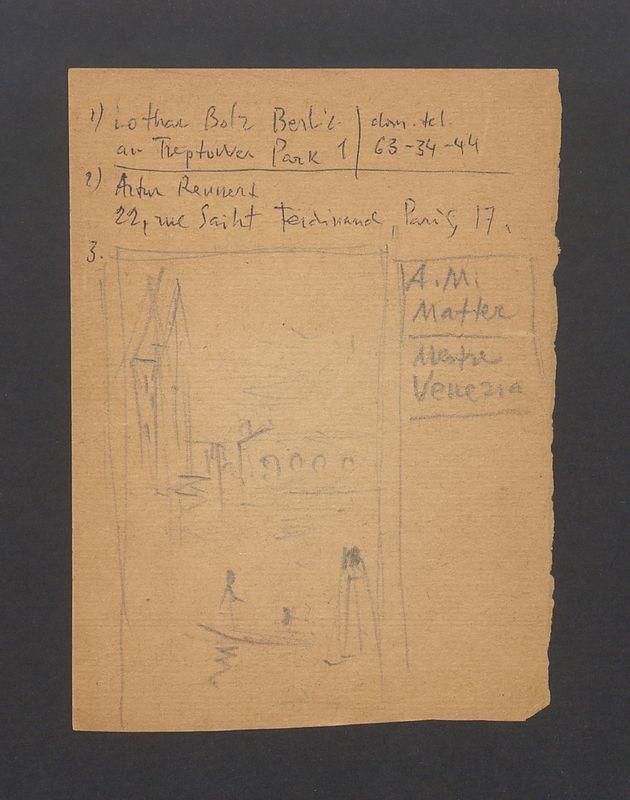 1) Lothar Bolz Berlin
an Treptower Park 1
dom. tel.
63-34-44
2) Artur Rennert
22, rue Saint Ferdinand, Paris, 17.
3.
A. M.
Matter
Mestre
Venezia